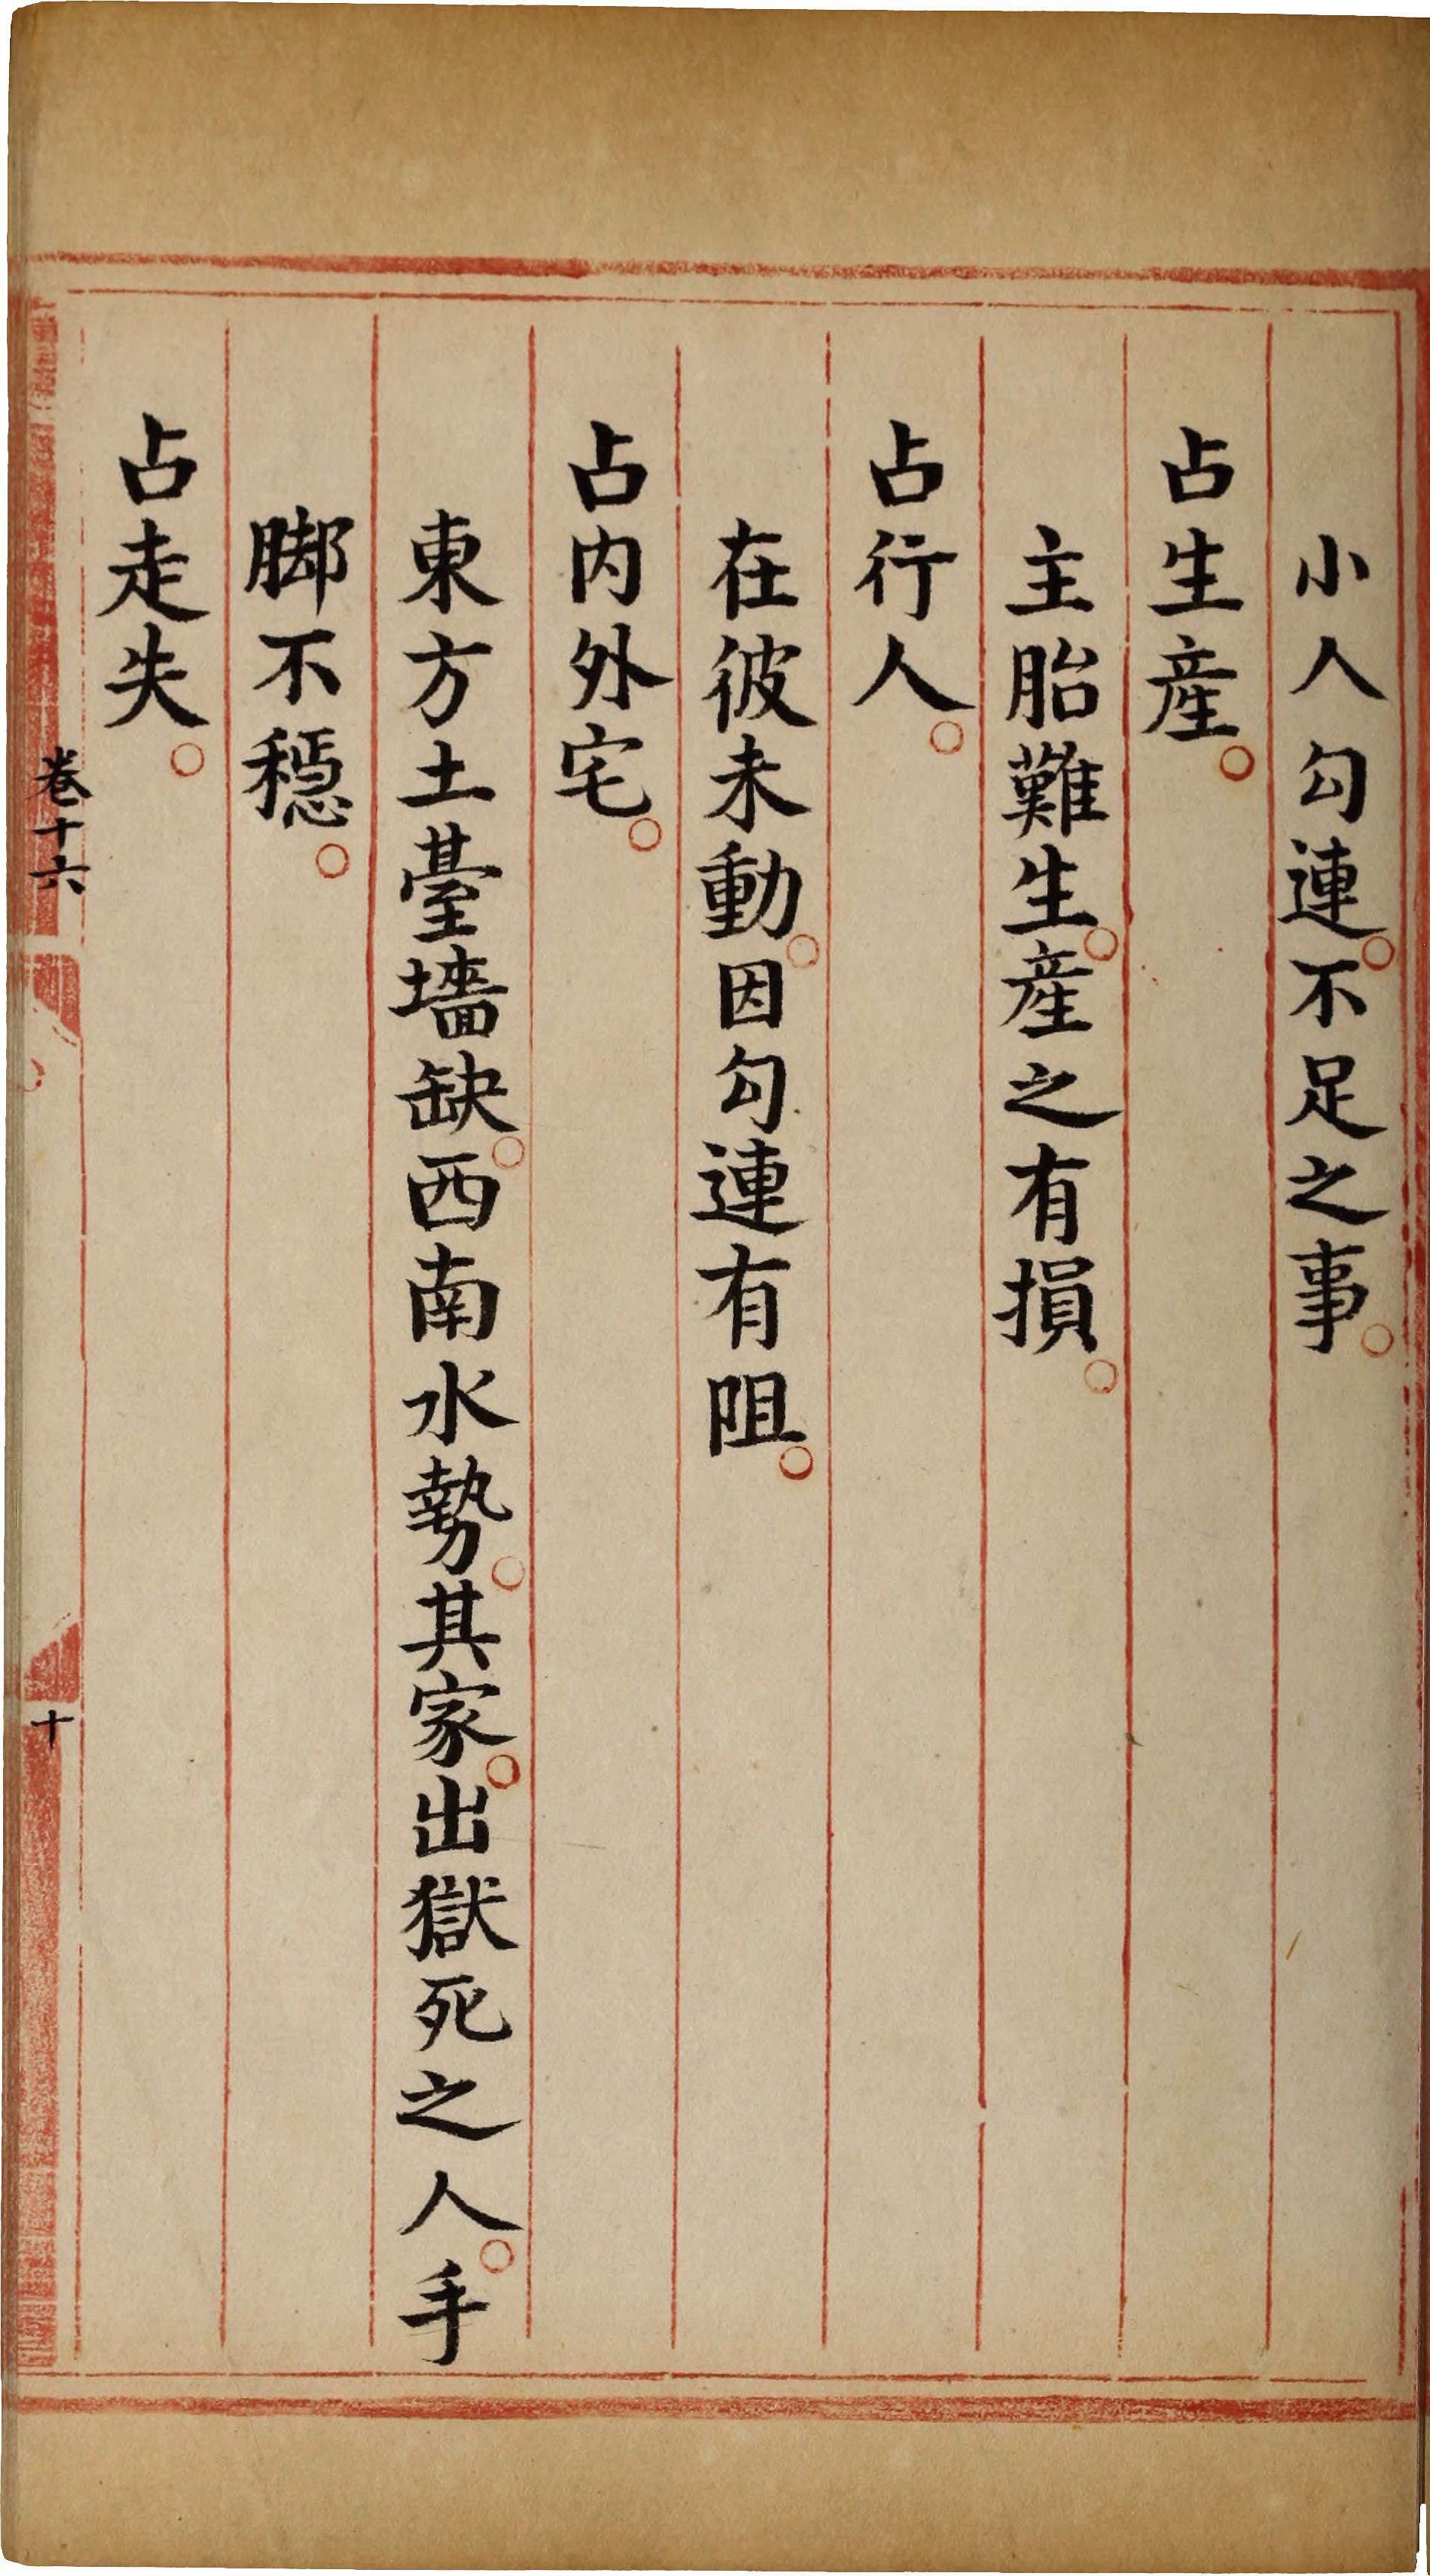 小人勾連。不足之事。
占生產。
主胎難生。產之有損。
占行人。
在彼未動。因勾連有阻。
占內外宅。
東方土臺墻缺。西南水勢。其家。出獄死之人。手
脚不穩。
占走失。
卷十六
十